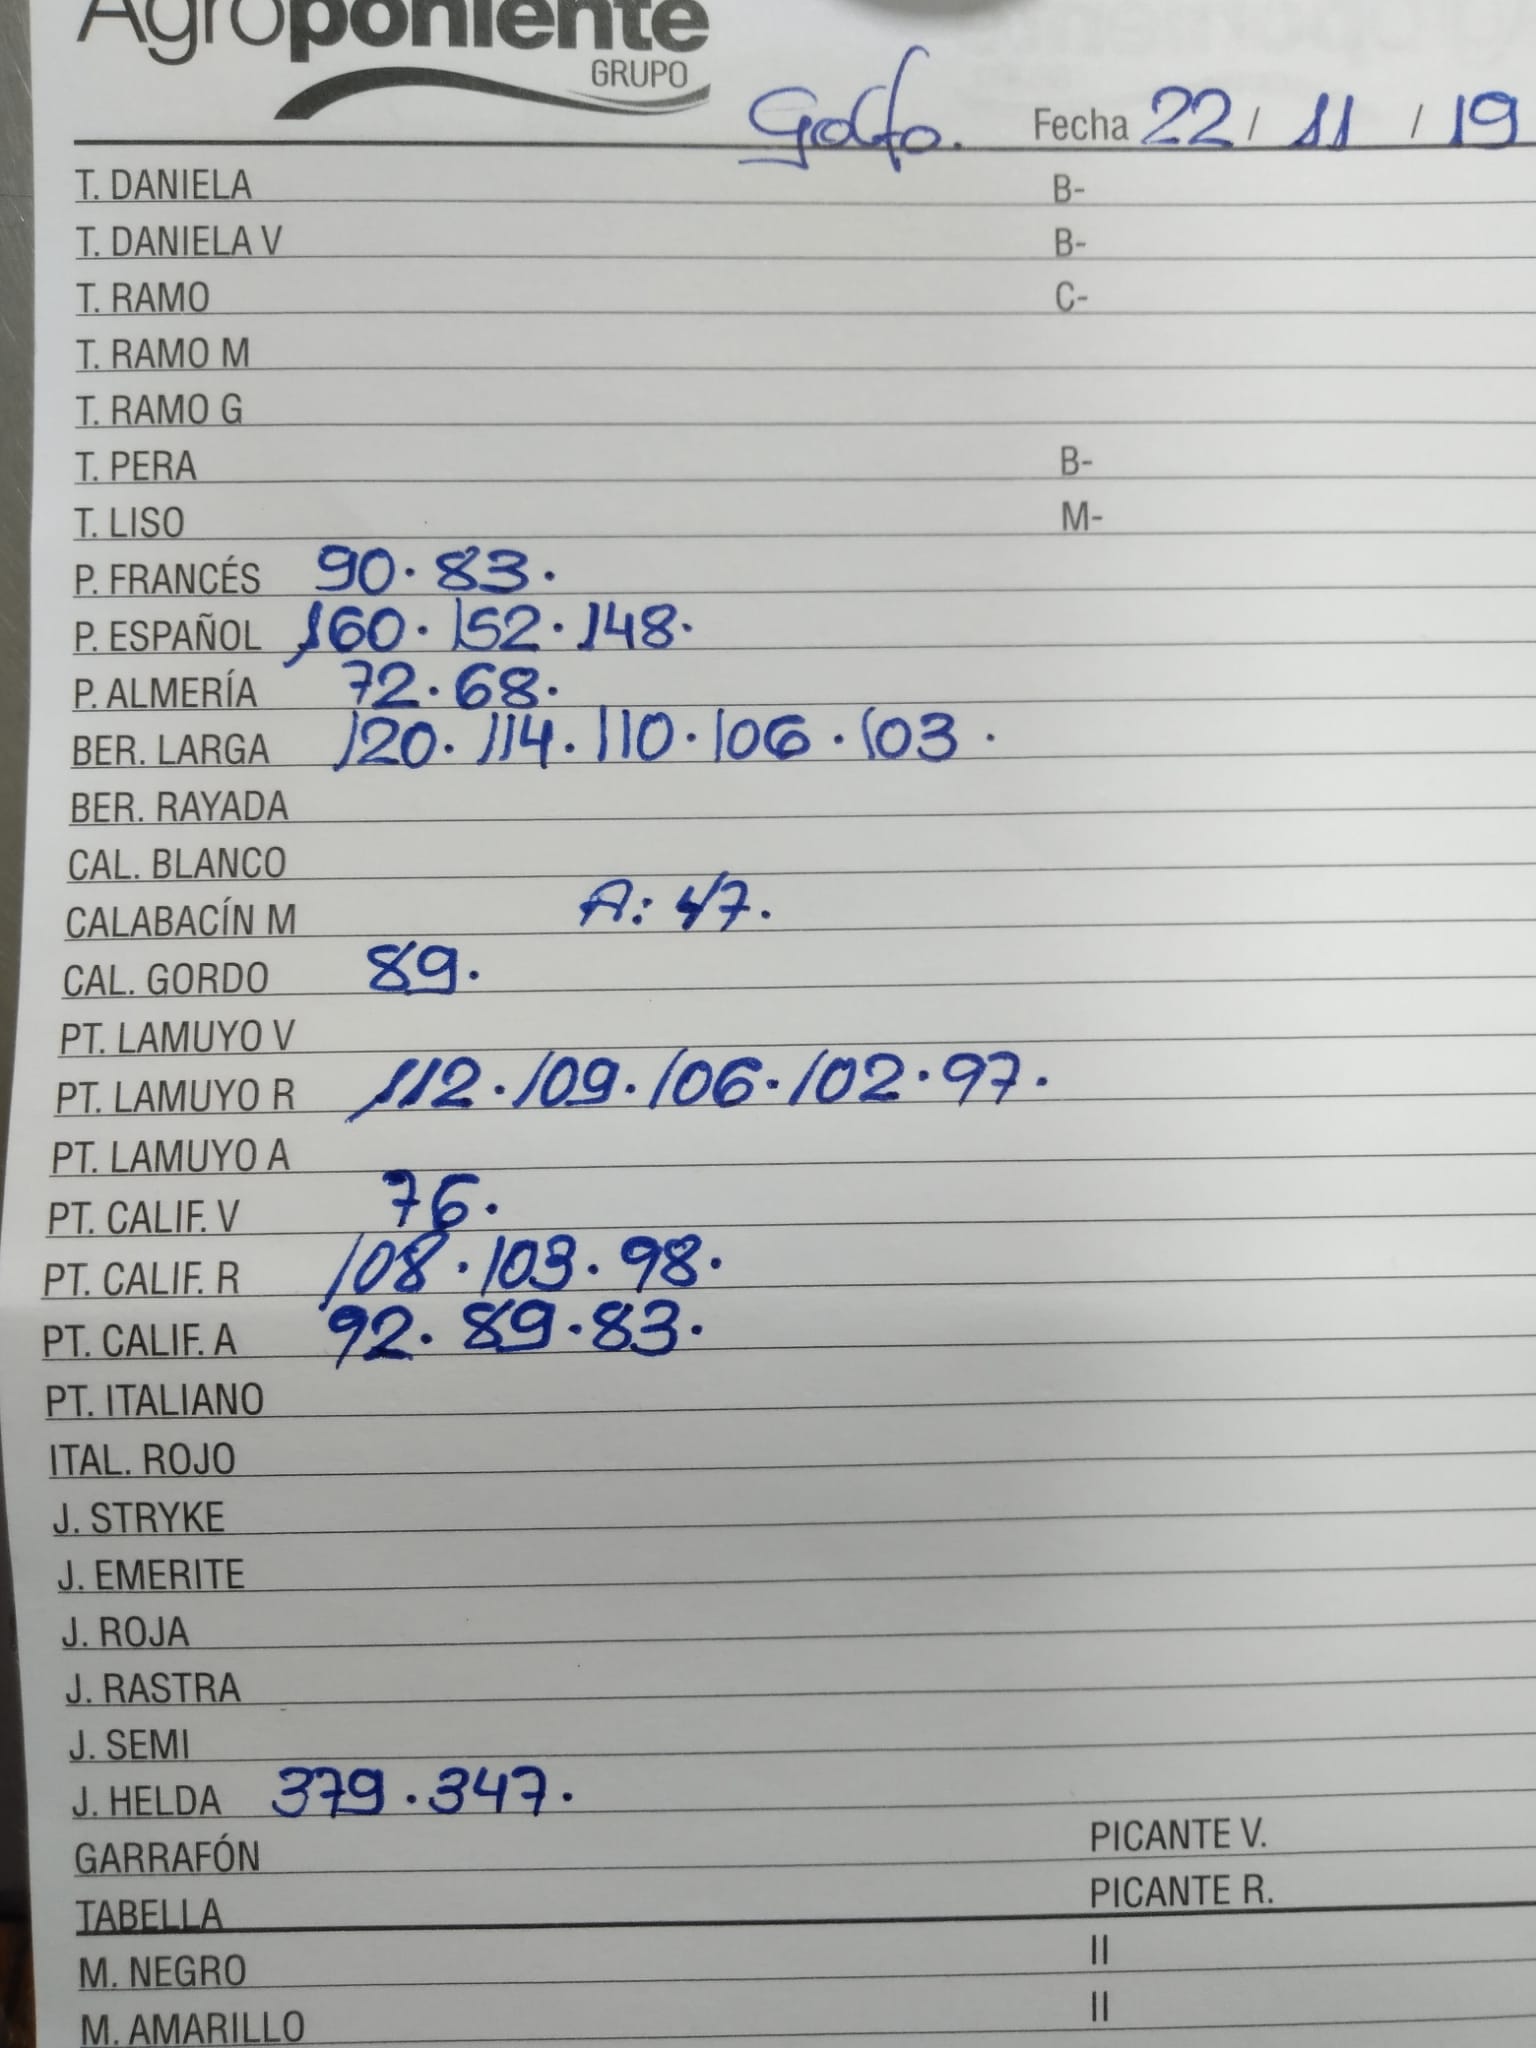 Agroponiente
GRUPO
Golfo. Fecha 22 / 11 / 19
T. DANIELA B-
T. DANIELA V B-
T. RAMO C-
T. RAMO M
T. RAMO G
T. PERA B-
T. LISO M-
P. FRANCÉS 90. 83.
P. ESPAÑOL 160. 152. 148.
P. ALMERÍA 72. 68.
BER. LARGA 120. 114. 110. 106. 103.
BER. RAYADA
CAL. BLANCO
CALABACÍN M A: 47.
CAL. GORDO 89.
PT. LAMUYO V
PT. LAMUYO R 112. 109. 106. 102. 97.
PT. LAMUYO A
PT. CALIF. V 76.
PT. CALIF. R 108. 103. 98.
PT. CALIF. A 92. 89. 83.
PT. ITALIANO
ITAL. ROJO
J. STRYKE
J. EMERITE
J. ROJA
J. RASTRA
J. SEMI
J. HELDA 379. 347.
GARRAFÓN PICANTE V.
TABELLA PICANTE R.
M. NEGRO II
M. AMARILLO II